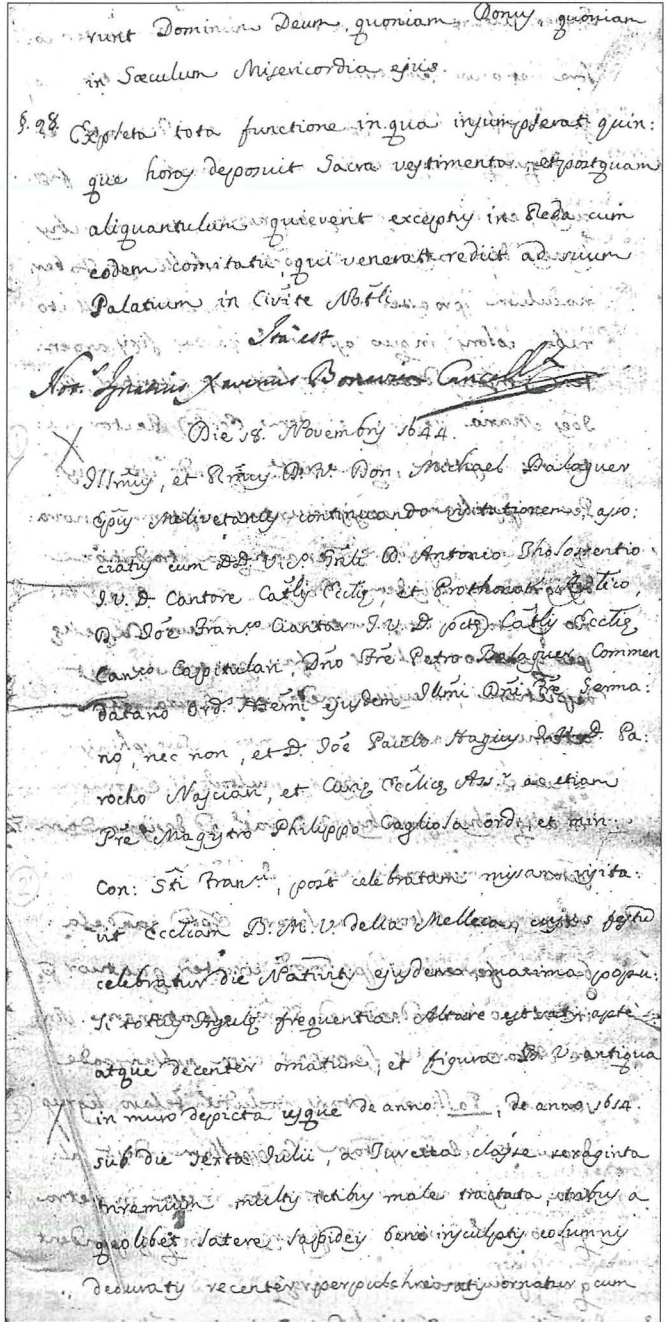 runt Dominum Deum, quoniam Bonus, quoniam
in Sæculum Misericordia ejus.
§. 28. Expleta tota functione in qua insumpserat quin:
que horas deposuit Sacra vestimenta, et postquam
aliquantulum quieverit exceptus in Rheda cum
eodem comitatu, qui venerat rediit ad suum
Palatium in Civite Notli
Ita est
Nots. Ignatius Xaverius Cancells
Die 18. Novembris 1644.
Illmus, et Rmus D. N. Don Michael Balaguer
Epus Melivetanus continuando visitationem, asso:
ciatus cum DD. Vico. Gnli D. Antonio
J. V. D. Cantore Catlis Eccliæ, et Prothonoto Aplico,
D. Joe Franco Ciantar J. V. D. Catlis Eccliæ
Canco Capitulari, Dno Fre Petro Balaguer Commen
datario Ordis ejusdem Illmi Dni Fre Germa:
no, nec non, et D. Joe Paulo Hagius J. V. D. Pa:
rocho Naxciari, et Eccliæ Assis, ac etiam
Pre Magistro Philippo Cagliola ordis, et min:
Con: Sti Fransci, post celebratam missam visita:
vit Eccliam B. M. V. della Melleca, cujus festu
celebratur die Nativitis ejusdem maxima popu:
li totius Insulæ frequentia. Altare est satis apte
atque decenter ornatum, et figura B. V. antiqua
in muro depicta usque de anno ___, de anno 1614.
sub die sexta Julii, a Turcica classe sexaginta
triremium multis ictibus male tractata, duabus a
quolibet latere lapideis bene insculptis columnis
deauratis recenter perpulchre satis ornatur cum